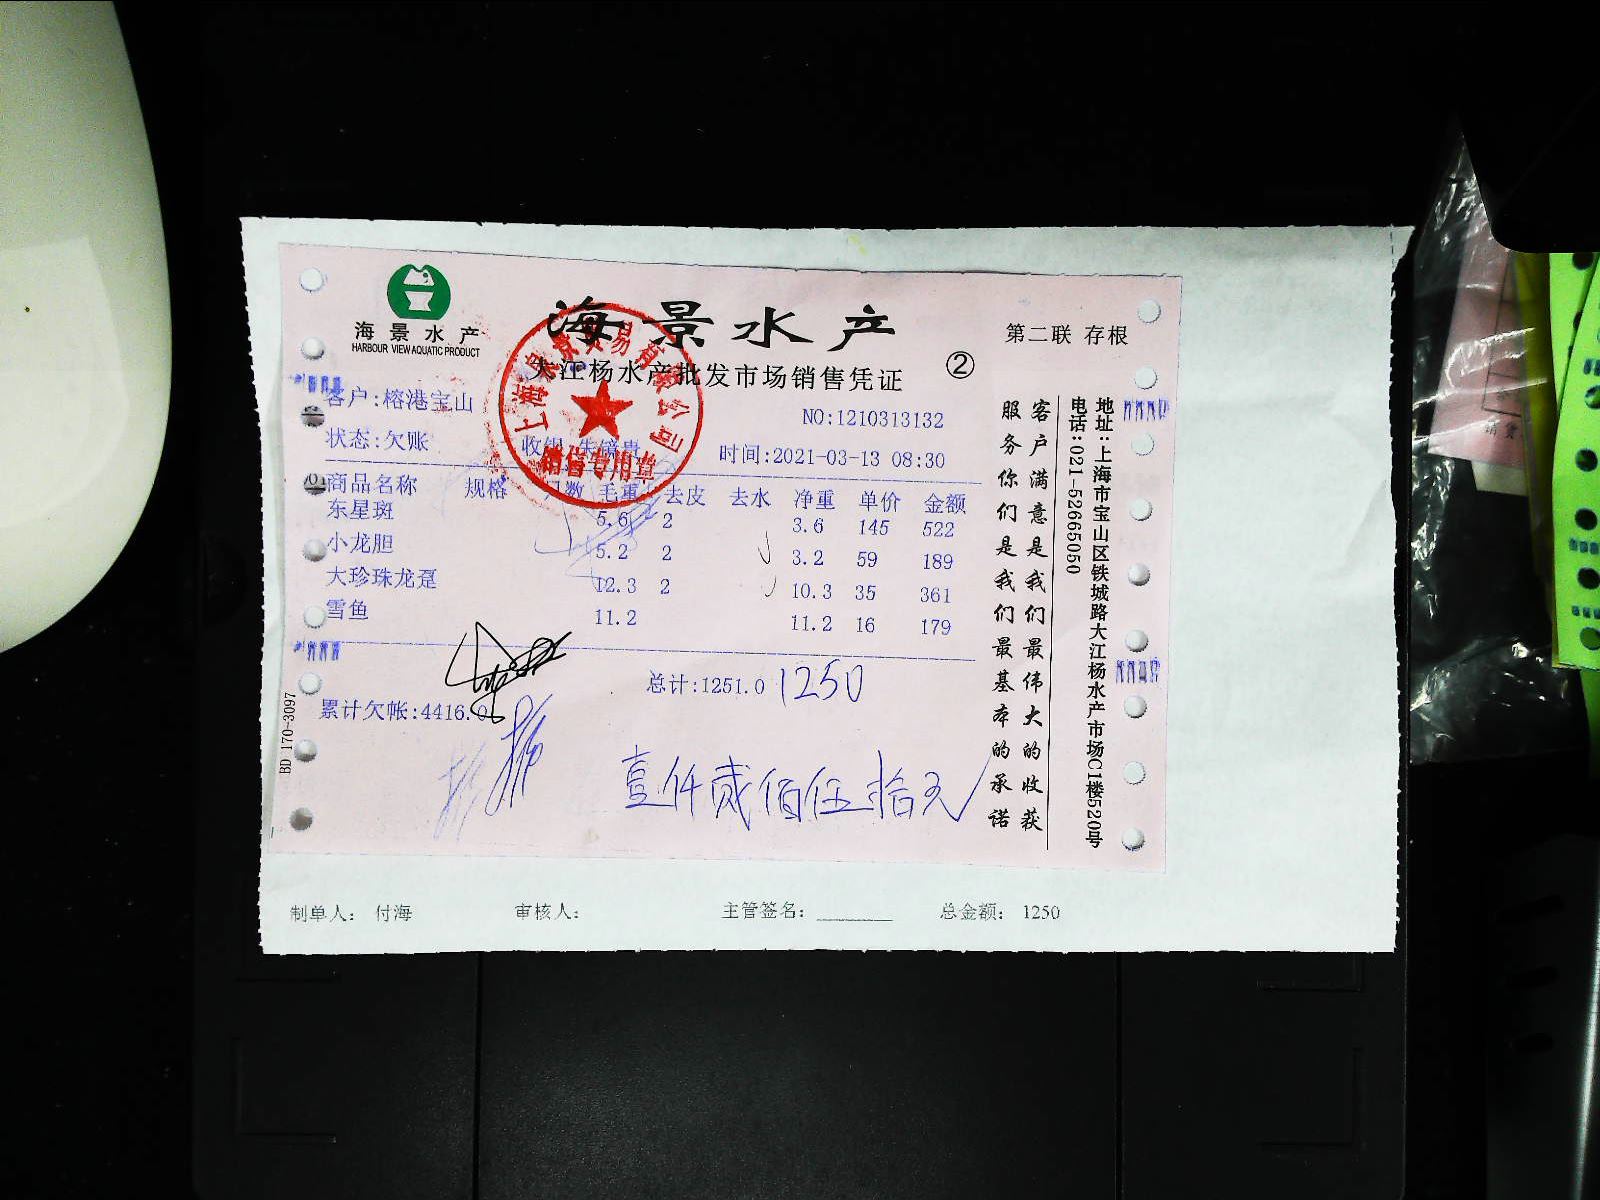 海景水产
HARBOUR VIEW AQUATIC PRODUCT
海景水产
大江杨水产批发市场销售凭证
②
第二联 存根
客户:榕港宝山
NO:1210313132
状态:欠账 收银:朱镜贵 时间:2021-03-13 08:30
商品名称 规格 只数 毛重 去皮 去水 净重 单价 金额
东星斑 5.6 2 3.6 145 522
小龙胆 5.2 2 3.2 59 189
大珍珠龙趸 12.3 2 10.3 35 361
雪鱼 11.2 11.2 16 179
总计:1251.0 1250
累计欠帐:4416.0
壹仟贰佰伍拾元
BD 170-3097
客户满意是我们最伟大的收获
服务你们是我们最基本的承诺
地址:上海市宝山区铁城路大江杨水产市场C1楼520号
电话:021-52665050
销售专用章
制单人: 付海 审核人: 主管签名: 总金额: 1250